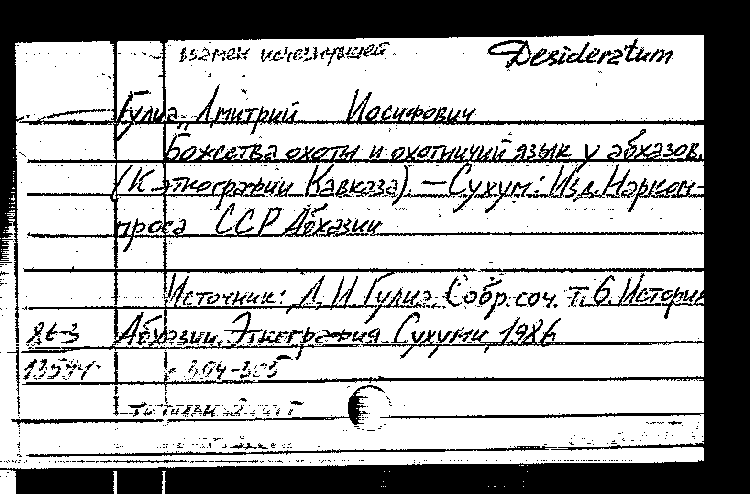 взамен исчезнувшей Desideratum
Гулиа, Дмитрий Иосифович
Божества охоты и охотничий язык у абхазов.
(К этнографии Кавказа). — Сухум: Изд. Нарком-
проса ССР Абхазии
Источник: Д. И. Гулиа. Собр. соч. т. 6. История
Абхазии. Этнография. Сухуми, 1986
с. 304-305